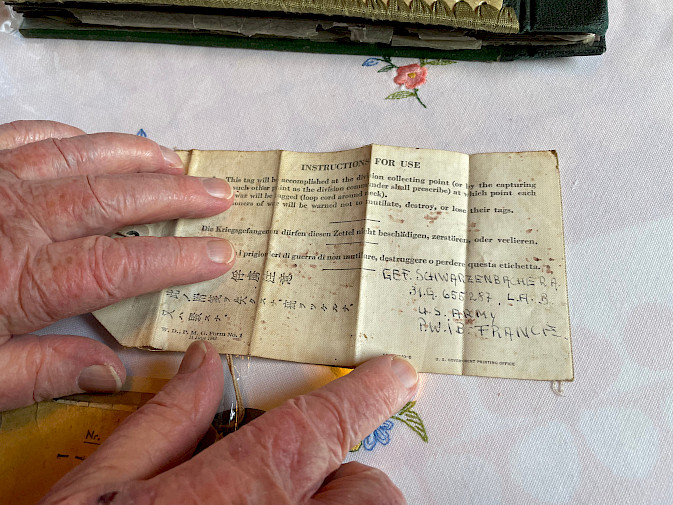 INSTRUCTIONS FOR USE
This tag will be accomplished at the division collecting point (or by the capturing
such other point as the division commander shall prescribe) at which point each
war will be tagged (loop cord around neck).
oners of war will be warned not to mutilate, destroy, or lose their tags.
Die Kriegsgefangenen dürfen diesen Zettel nicht beschädigen, zerstören, oder verlieren.
i prigionieri di guerra di non mutilare, destruggere o perdere questa etichetta.
GEF. SCHWARZENBACHER A.
31.G. 656287. L.A.B.
U.S. ARMY
P.W.I.B. FRANCE
W. D., P. M. G. Form No. 1
U. S. GOVERNMENT PRINTING OFFICE
Nr.